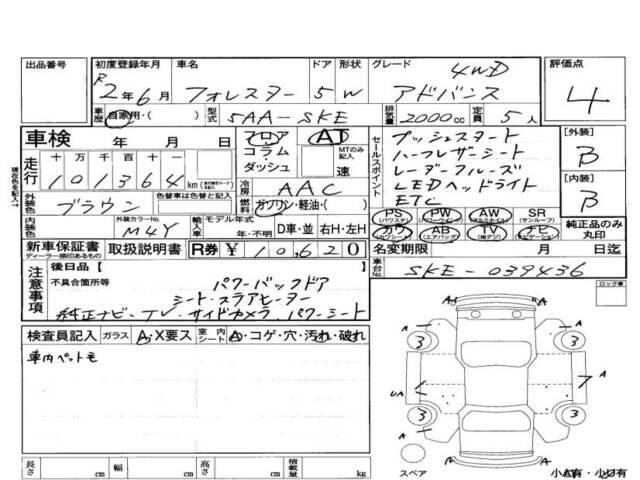 出品番号
初度登録年月 R 2年6月
車名 フォレスター
ドア 5
形状 W
グレード 4WD アドバンス
評価点 4
車歴 自家用・( )
型式 5AA-SKE
排気量 2000cc
定員 5人
車検 年 月 日
フロア コラム ダッシュ
AT MTのみ記入 速
セールスポイント
プッシュスタート
ハーフレザーシート
レーダークルーズ
LEDヘッドライト
ETC
[外装] B
[内装] B
現在を記入→
走行 十 万 千 百 十 一
101364 km
冷房 AAC
外装色 ブラウン
色替車は色替と記入
燃料 ガソリン・軽油・( )
PS (パワステ) PW (パワーウインド) AW (アルミホイル) SR (サンルーフ)
カワ (カワシート) AB (エアバッグ) TV (地デジ) ナビ (ナビゲーション)
純正品のみ丸印
内装色
外装カラーNo. M4Y
輸入車 モデル年式 年・不明 D車・並 右H・左H
新車保証書 ディーラー捺印あるもの
取扱説明書
R券 ¥ 10,620
名変期限 月 日迄
注意事項
後日品【 】
不具合箇所等 パワーバックドア
シート・ステアヒーター
純正ナビ-TV・サイドカメラ パワーシート
車台No. SKE-039436
ロック車
検査員記入 ガラス A・X要ス 室内シート A・コゲ・穴・汚れ・破れ
車内ペット毛
A
3 3
A A
UA 7 A
3 3
A A
スペア
小A有・小U有
長さ cm 幅 cm 高さ cm 積載量 kg